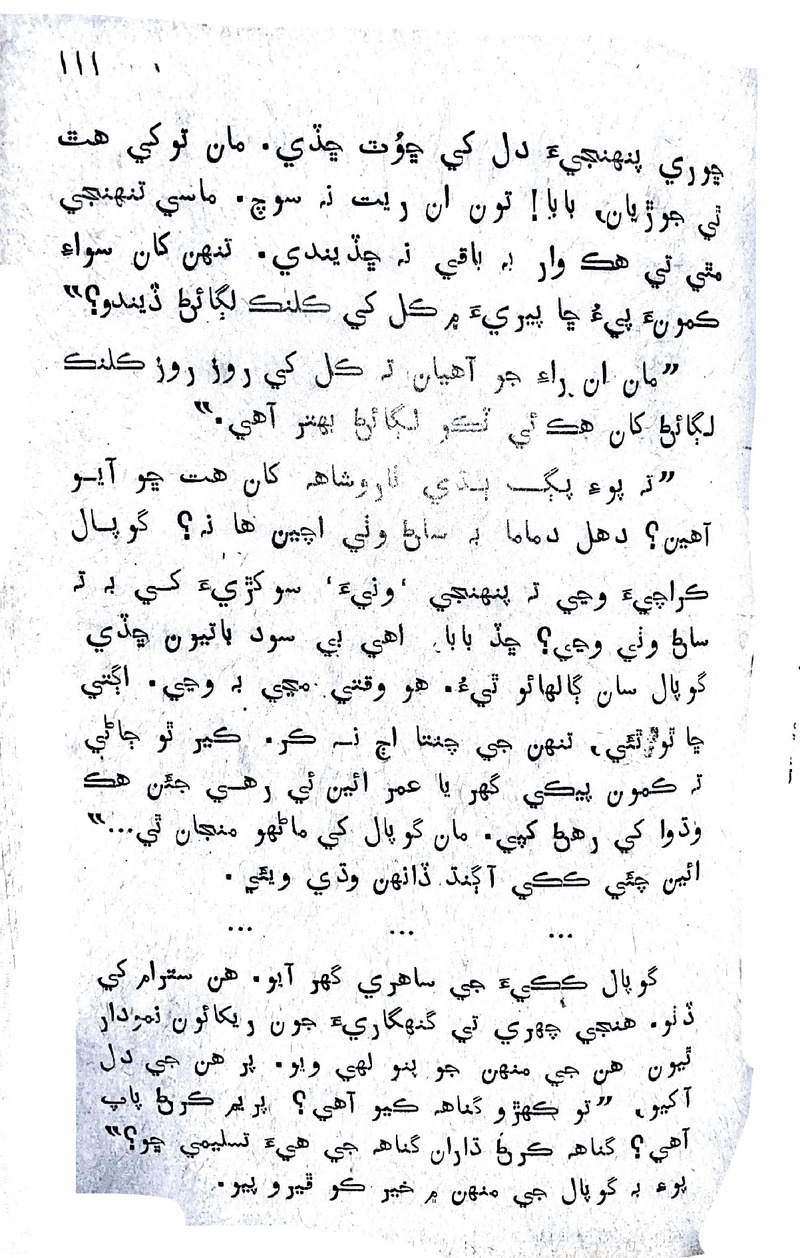 ١١١
ڇوري پنهنجيءَ دل کي ڇوُٽ ڇڏي. مان توکي هٿ
ٿي جوڙيان، بابا! تون ان ريت نہ سوچ. ماسي تنهنجي
مٿي تي هڪ وار بہ باقي نہ ڇڏيندي. تنهن کان سواءِ
ڪمونءَ پيءُ ڇا پيريءَ ۾ ڪل کي ڪلنڪ لڳائڻ ڏيندو؟“
”مان ان راءِ جو آهيان تہ ڪل کي روز روز ڪلنڪ
لڳائڻ کان هڪ ئي ٽڪو لڳائڻ بهتر آهي.“
”تہ پوءِ پڳ ٻڌي ناروشاهہ کان هت ڇو آيو
آهين؟ دهل دماما بہ ساڻ وٺي اچين ها نہ؟ گوپال
ڪراچيءَ وڃي تہ پنهنجي ‘ونيءَ‘ سوکڙيءَ کي بہ تہ
ساڻ وٺي وڃي؟ ڇڏ بابا. اهي بي سود باتيون ڇڏي
گوپال سان ڳالهائو ٿيءُ. هو وقتي مڃي بہ وڃي. اڳتي
ڇا ٿو ٿئي، تنهن جي چنتا اڄ نہ ڪر. ڪير ٿو ڄاڻي
تہ ڪمون پيڪي گهر يا عمر ائين ئي رهي جئن هڪ
وڌوا کي رهڻ کپي. مان گوپال کي ماڻهو منجان ٿي...“
ائين چئي ڪڪي آڳنڌ ڏانهن وڌي ويئي.
... ... ...
گوپال ڪڪيءَ جي ساهري گهر آيو. هن سترام کي
ڏٺو. هنجي چهري تي گنهگاريءَ جون ريکائون نمودار
ٿيون هن جي منهن جو پنو لهي ويو. پر هن جي دل
آکيو، ”تو ڪهڙو گناهہ ڪيو آهي؟ پريم ڪرڻ پاپ
آهي؟ گناهہ ڪرڻ ڌاران گناهہ جي هيءَ تسليمي ڇو؟“
پوءِ بہ گوپال جي منهن ۾ خير ڪو ڦيرو پيو.